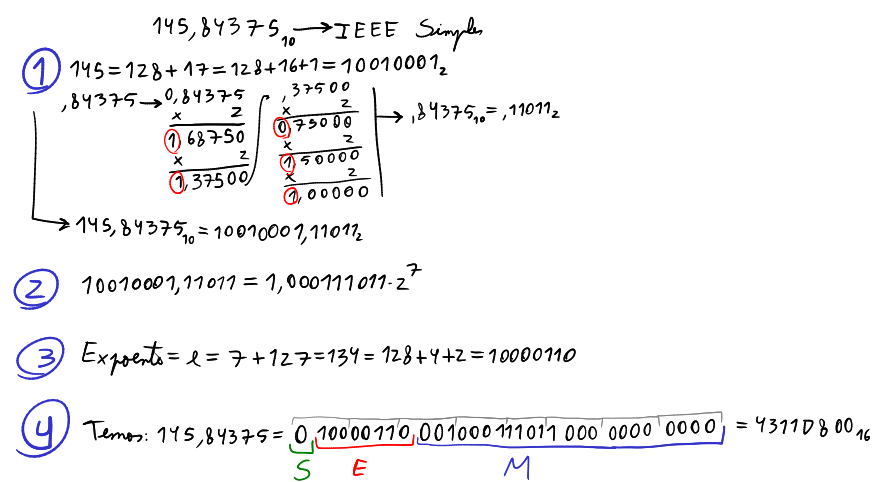 145,84375₁₀ → IEEE Simples
1 145 = 128 + 17 = 128 + 16 + 1 = 10010001₂
,84375 → 0,84375
x 2
1,68750
x 2
1,37500
,37500
x 2
0,75000
x 2
1,50000
x 2
1,00000
→ ,84375₁₀ = ,11011₂
→ 145,84375₁₀ = 10010001,11011₂
2 10010001,11011 = 1,000111011 · 2⁷
3 Expoente = e = 7 + 127 = 134 = 128 + 4 + 2 = 10000110
4 Temos: 145,84375 = 0 10000110 001000111011 000 0000 0000 = 4311D800₁₆
S E M